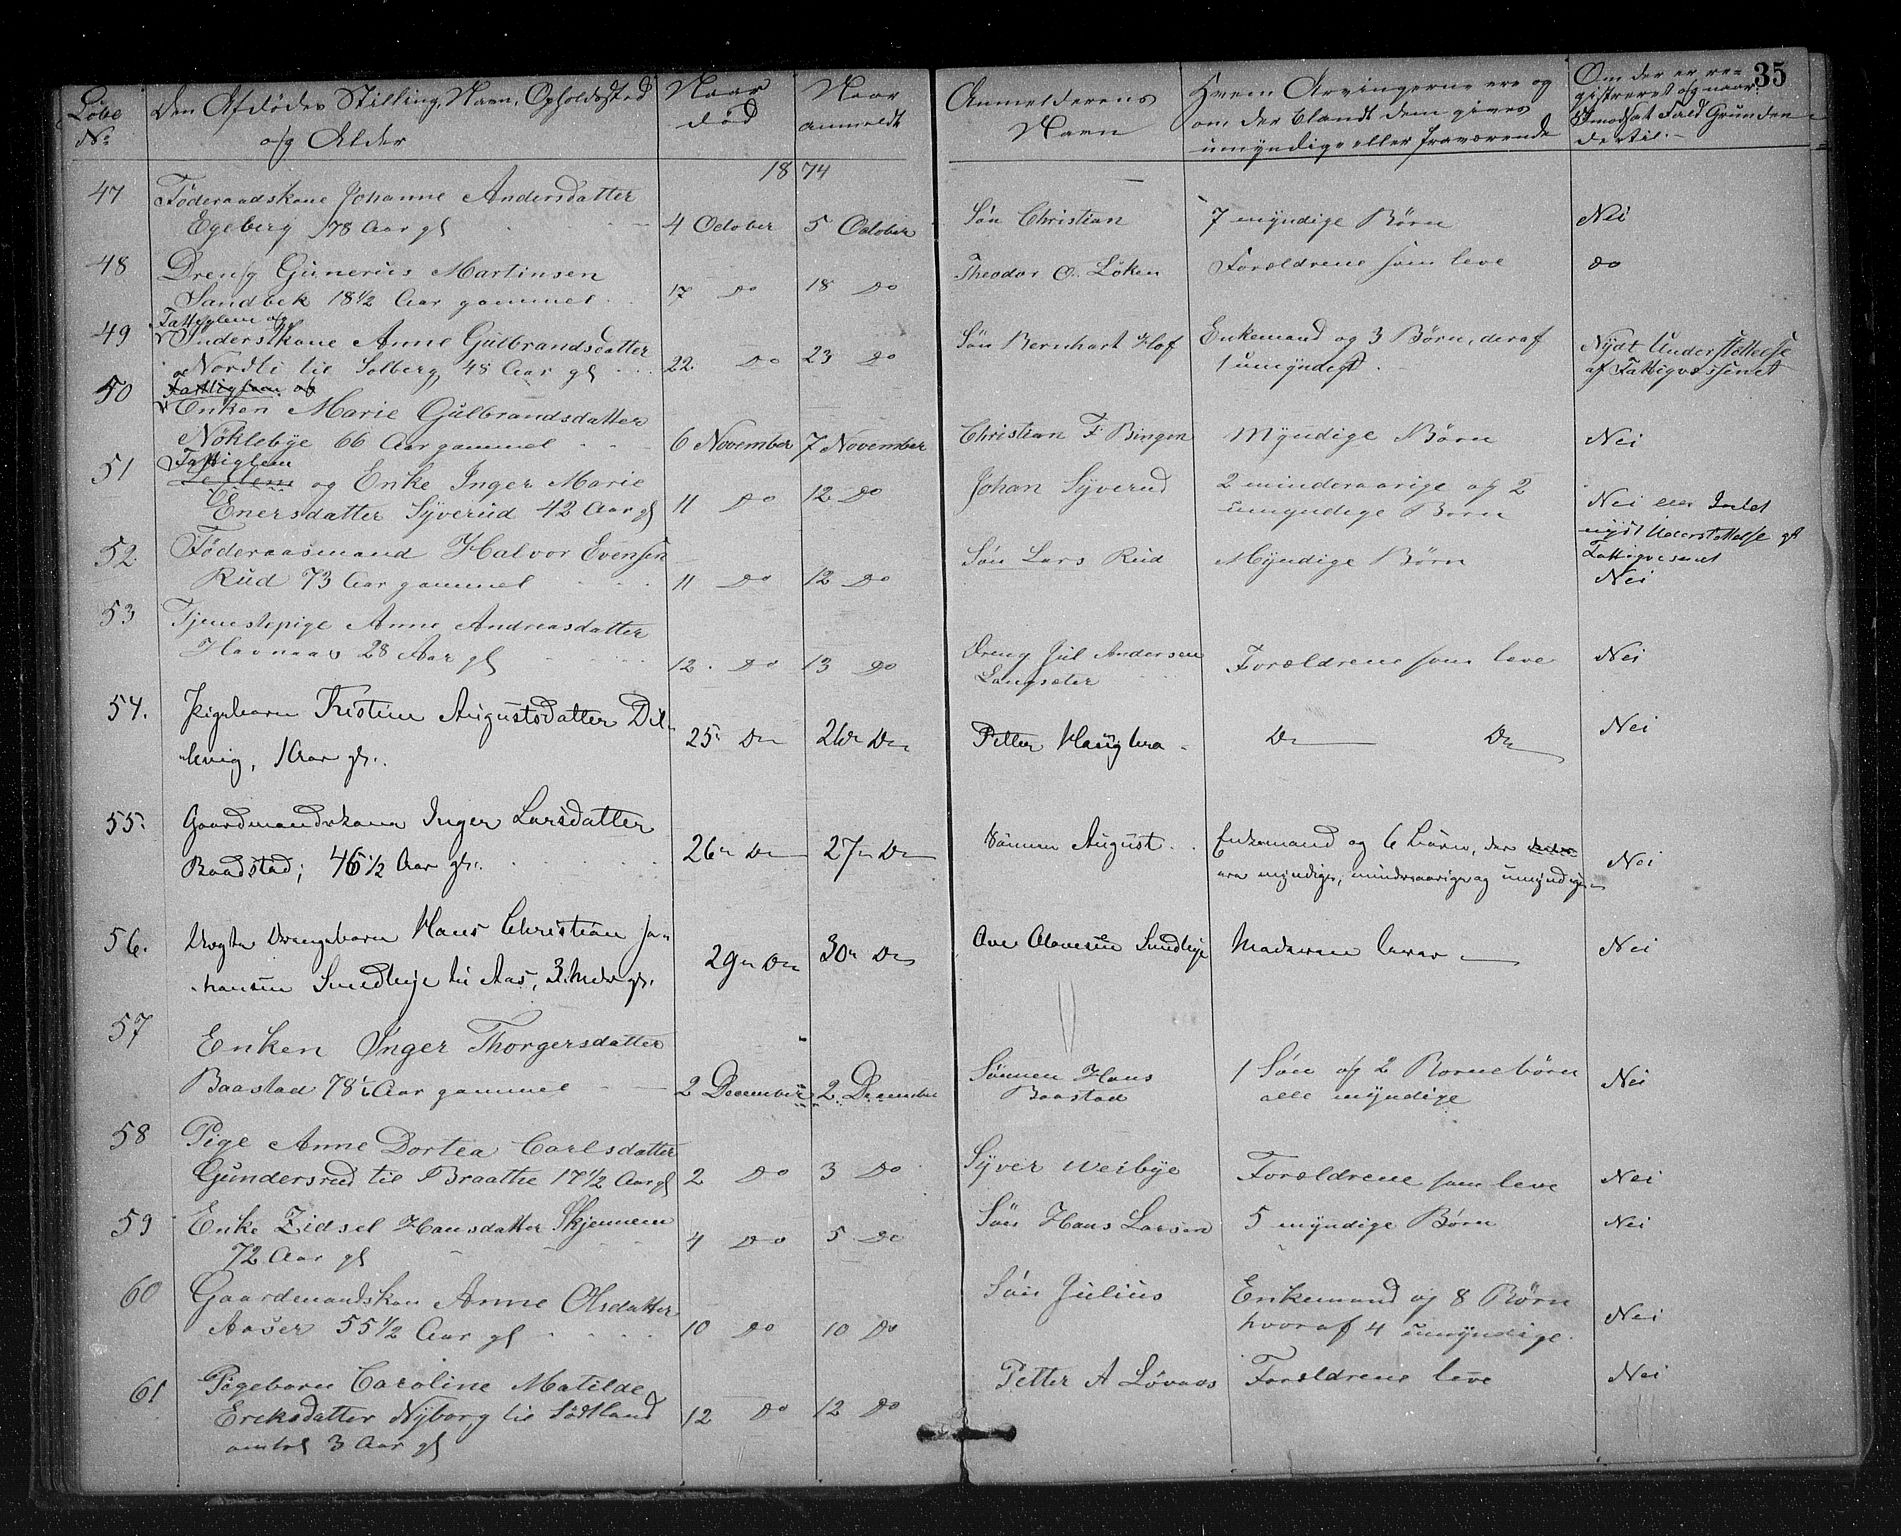 35
Løbe Den Afdødes Stilling, Navn, Opholdssted Naar Naar Anmelderens Hvem Arvingerne ere og Om der er re-
No. og Alder død anmeldt Navn om der blandt dem gives gistreret og naar.
umyndige eller fraværende I modsat Fald Grunden
dertil.
18 74
47 Føderaadskone Johanne Andersdatter
Egeberg 78 Aar gl 4 October 5 October Søn Christian 7 myndige Børn Nei
48 Dreng Gunerius Martinsen Theodor O. Løken Forældrene som leve do
Sandbek 18 1/2 Aar gammel 17 Do 18 Do
Fattiglem og
49 Inderstkone Anne Gulbrandsdatter Søn Bernhart Hof Enkemand og 3 Børn, deraf Nydt Understøttelse
Nordli til Solberg 48 Aar gl 22 Do 23 Do 1 umyndigt af Fattigvæsenet
Fattiglem og
50 Enken Marie Gulbrandsdatter
Nøklebye 66 Aar gammel 6 November 7 November Christian F Bingen Myndige Børn Nei
Fattiglem
51 og Enke Inger Marie Johan Syverud 2 minderaarige og 2
Enersdatter Syverud 42 Aar gl 11 Do 12 Do umyndige Børn Nei
nydt Understøttelse af
Fattigvesenet
52. Føderaasmand Halvor Evensen Søn Lars Rud Myndige Børn
Rud 73 Aar gammel 11 Do 12 Do Nei
53 Tjenestepige Anne Andreasdatter Dreng Jul Andersen
Havnaas 28 Aar gl 12. Do 13 Do Langseter Forældrene som leve Nei
54. Pigebarn Kristine Augustsdatter Dil-
levig, 1 Aar gl. 25 Do 26 Do Petter Haugbra Do Do Nei
55. Gaardmandskone Inger Larsdatter Sønnen August Enkemand og 6 Børn, der
Baadstad; 46 1/2 Aar gl. 26 Do 27 Do ere myndige, minderaarige og umyndige Nei
56. Uægte Drengebarn Hans Christian Jo-
hansen Smedleje til Aas, 3. gl. 29 Do 30 Do Ove Olavesen Smedleje Moderen lever Nei
57 Enken Inger Thorgersdatter
Baastad 78 1/2 Aar gammel 2 December 2 December Sønnen Hans 1 Søn og 2 Børnebørn Nei
Baastad alle myndige
58 Pige Anne Dortea Carlsdatter
Gundersrud til Braathe 17 1/2 Aar gl 2 Do 3 Do Syver Weibye Forældrene som leve Nei
59 Enke Zidsel Hansdatter Skjennem Søn Hans Larsen 5 myndige Børn Nei
72 Aar gl 4 Do 5 Do
60 Gaardmandskon Anne Olsdatter Søn Julius Enkemand og 8 Børn
Aaser 55 1/2 Aar gl 10 Do 10 Do hvoraf 4 umyndige. Nei
61 Pigebarn Caroline Matilde Petter A Løvaas Forældrene leve Nei
Ereksdatter Nyborg til Sødtland 12 Do 12 Do
omtal 3 Aar gl